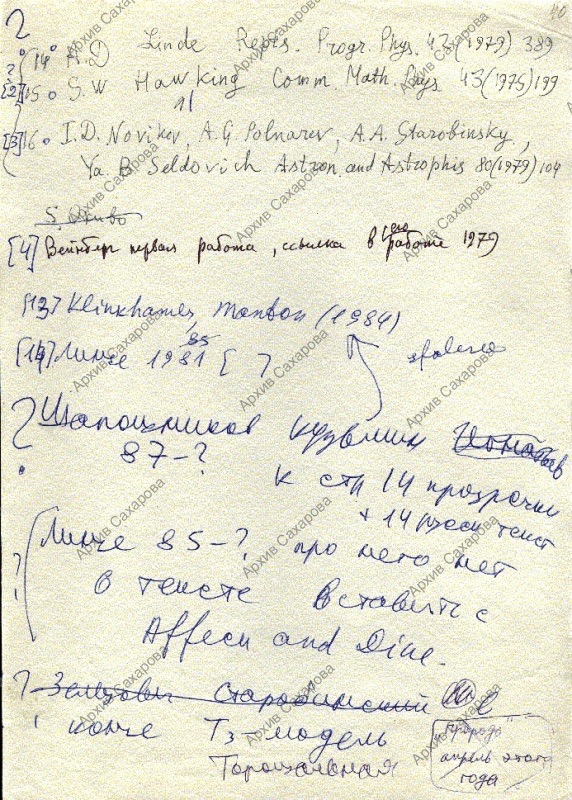 40
?
14 A.D Linde Repts. Progr. Phys. 42 (1979) 389
[2] 15 S.W Hawking Comm. Math. Phys 43 (1975) 199
[3] 16 I.D. Novikov, A.G Polnarev, A.A. Starobinsky,
Ya B Seldovich Astron. and Astrophis 80 (1979) 104
[4] Вейнберг первая работа, ссылка в его работе 1979
[13] Klinkhamer, Manton (1984)
[14] Линде 1981 85 [ ]
? Шапошников Кузьмин
87-?
к стр 14 прозрачки
+ 14 русск текст
? Линде 85-? про него нет
в тексте вставить с
Affeck and Dine.
? Зельдович Старобинский
конче T3-модель
Тороидальная
"Природа"
апрель этого
года
Архив Сахарова